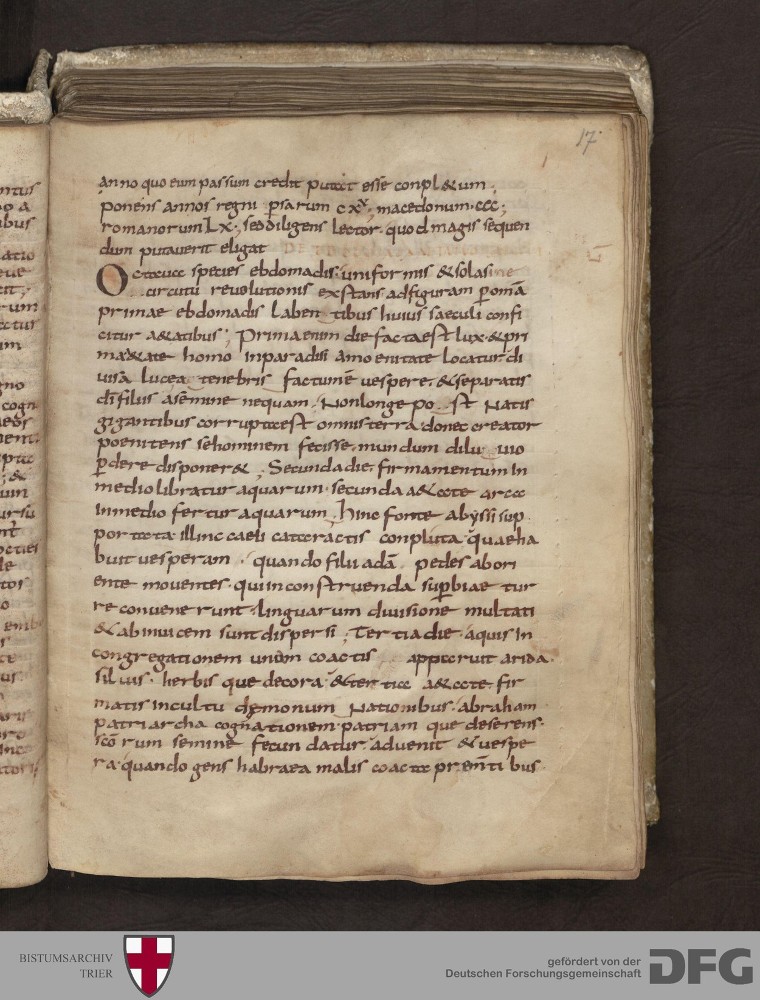 17
anno quo eum passum credit putat esse conpl&um.
ponens annos regni psarum cxx; macedonum ccc;
romanorum Lx; sed diligens lector quod magis sequen
dum putaverit eligat
Octava species ebdomadis uniformis & sola sine
circuitu revolutionis exstans ad figuram p omā
primae ebdomadis laben tibus huius saeculi confi
citur a&atibus; Prima enim die facta est lux & pri
ma a&ate homo in paradisi amoenitate locatur di
visa luce a tenebris factum ē vespere. & separatis
dī filiis a semine nequam. Non longe po st natis
gigantibus corrupta est omnis terra donec creator
poenitens se hominem fecisse. mundum diluvio
pdere disponer&; Secunda die firmamentum in
medio libratur aquarum secunda a&ate arca
in medio fertur aquarum. hinc fonte abyssi sup
portata illinc caeli cataractis conpluta quae ha
buit vesperam. quando filii adā pedes ab ori
ente moventes qui in construenda supbiae tur
re convenerunt linguarum divisione multati
& ab invicem sunt dispersi; Tertia die aquis in
congregationem unam coactis apparuit arida
silvis herbis que decora & tertia a&ate fir
matis in cultu demonum nationibus abraham
patriarcha cognationem patriam que deserens
scō rum semine fecundatur advenit & vespe
ra quando gens habraea malis coacta prementibus
BISTUMSARCHIV
TRIER
gefördert von der
Deutschen Forschungsgemeinschaft
DFG